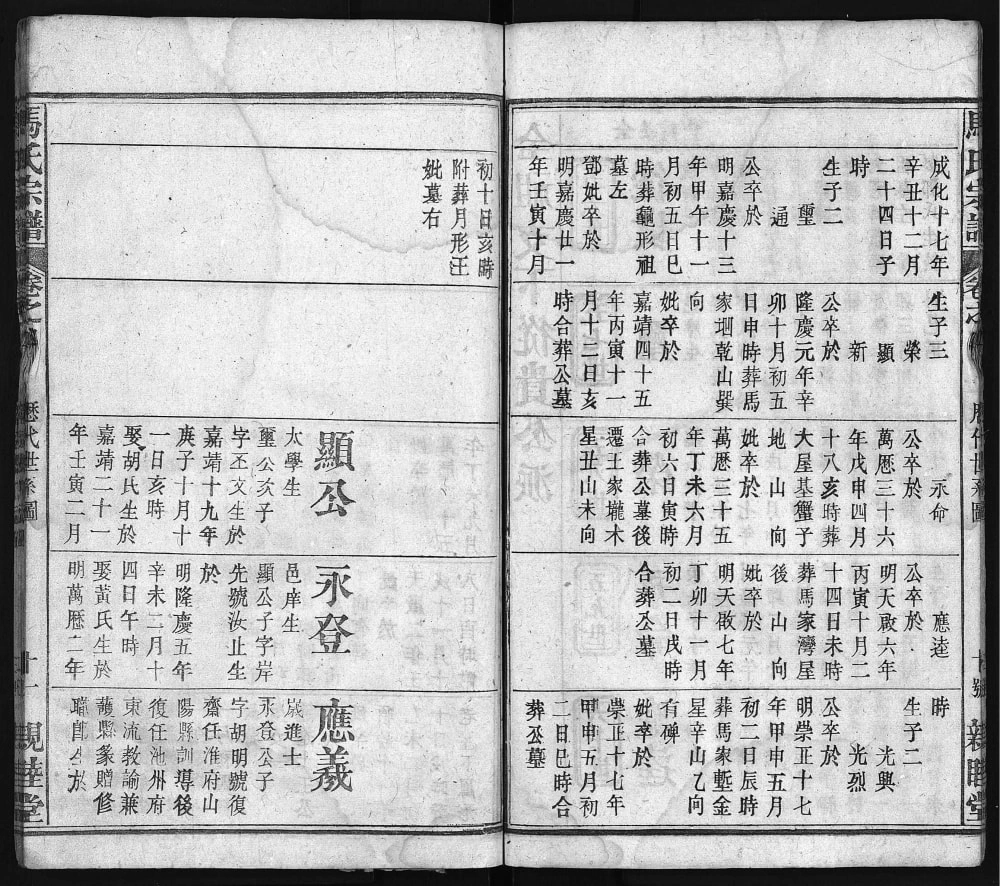 成化十七年
辛丑十二月
二十四日子
時
生子二
璽
通
公卒於
明嘉慶十三
年甲午十一
月初五日巳
時葬龜形祖
墓左
鄧妣卒於
明嘉慶廿一
年壬寅十月
生子三
榮
顯
新
公卒於
隆慶元年辛
卯十月初五
日申時葬馬
家垇乾山巽
向
妣卒於
嘉靖四十五
年丙寅十一
月十二日亥
時合葬公墓
永命
公卒於
萬厯三十六
年戊申四月
十八亥時葬
大屋基蟹子
地山向
妣卒於
萬厯三十五
年丁未六月
初六日寅時
合葬公墓後
遷王家壠木
星丑山未向
應逵
公卒於
明天啟六年
丙寅十月二
十四日未時
葬馬家灣屋
後山向
妣卒於
明天啟七年
丁卯十一月
初二日戌時
合葬公墓
時
生子二
光興
光烈
公卒於
明崇正十七
年甲申五月
初二日辰時
葬馬家塹金
星辛山乙向
有碑
妣卒於
崇正十七年
甲申五月初
二日巳時合
葬公墓
馬氏宗譜
歷代世系圖
親睦堂
馬氏宗譜
卷之
歷代世系圖
廿一
親睦堂
初十日亥時
附葬月形王
妣墓右
顯公
太學生
璽公次子
字丕文生於
嘉靖十九年
庚子十月十
一日亥時
娶胡氏生於
嘉靖二十一
年壬寅二月
永登
邑庠生
顯公子字岸
先號汝止生
於
明隆慶五年
辛未二月十
四日午時
娶黃氏生於
明萬厯二年
應義
歲進士
永登公子
字胡明號復
齋任淮府山
陽縣訓導後
復任池州府
東流教諭兼
縣篆贈修